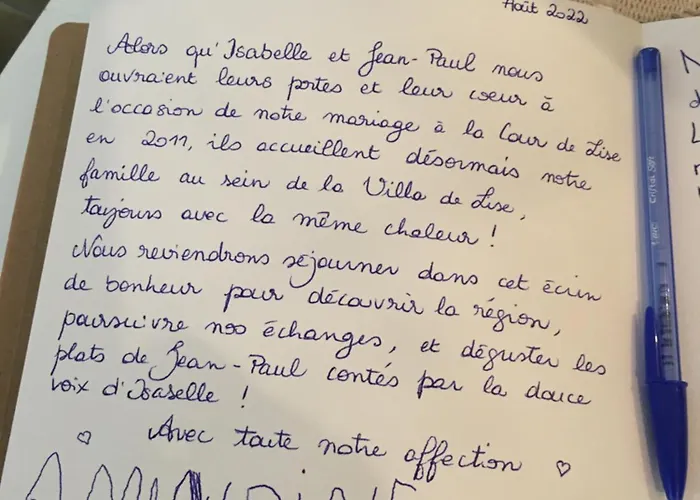 Août 2022
Alors qu'Isabelle et Jean-Paul nous
ouvraient leurs portes et leur coeur à
l'occasion de notre mariage à la Cour de Lise
en 2011, ils accueillent désormais notre
famille au sein de la Villa de Lise,
toujours avec la même chaleur !
Nous reviendrons séjourner dans cet écrin
de bonheur pour découvrir la région,
poursuivre nos échanges, et déguster les
plats de Jean-Paul contés par la douce
voix d'Isabelle !
Avec toute notre affection